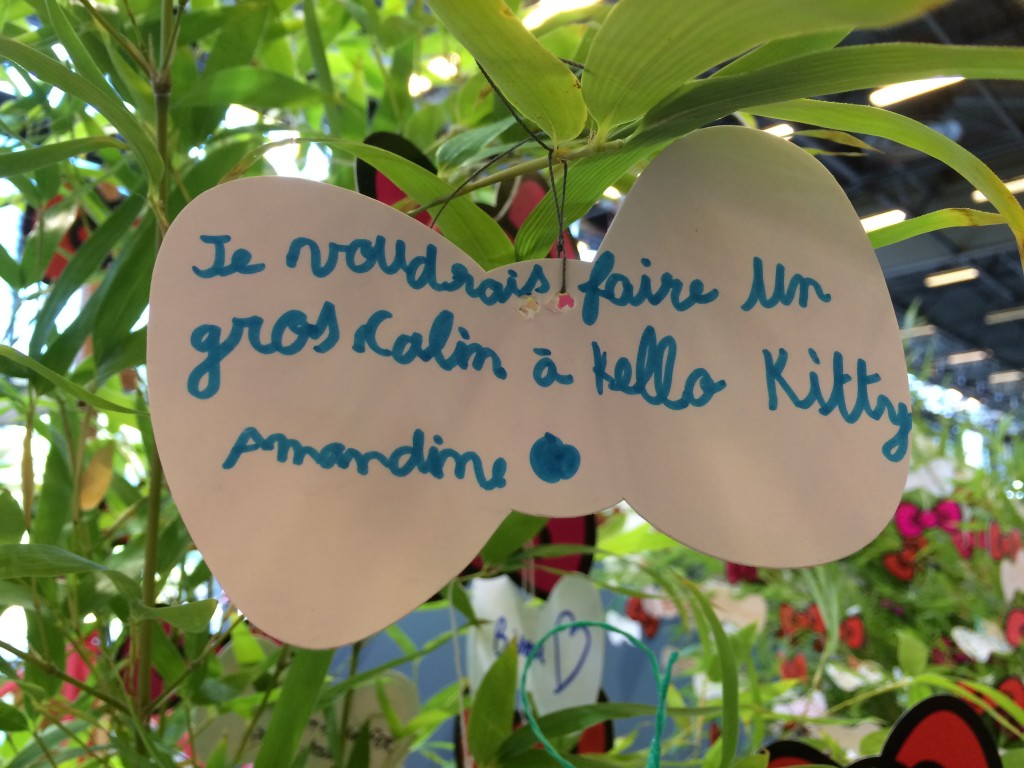 Je voudrais faire Un
gros Kalin à Hello Kitty
Amandine